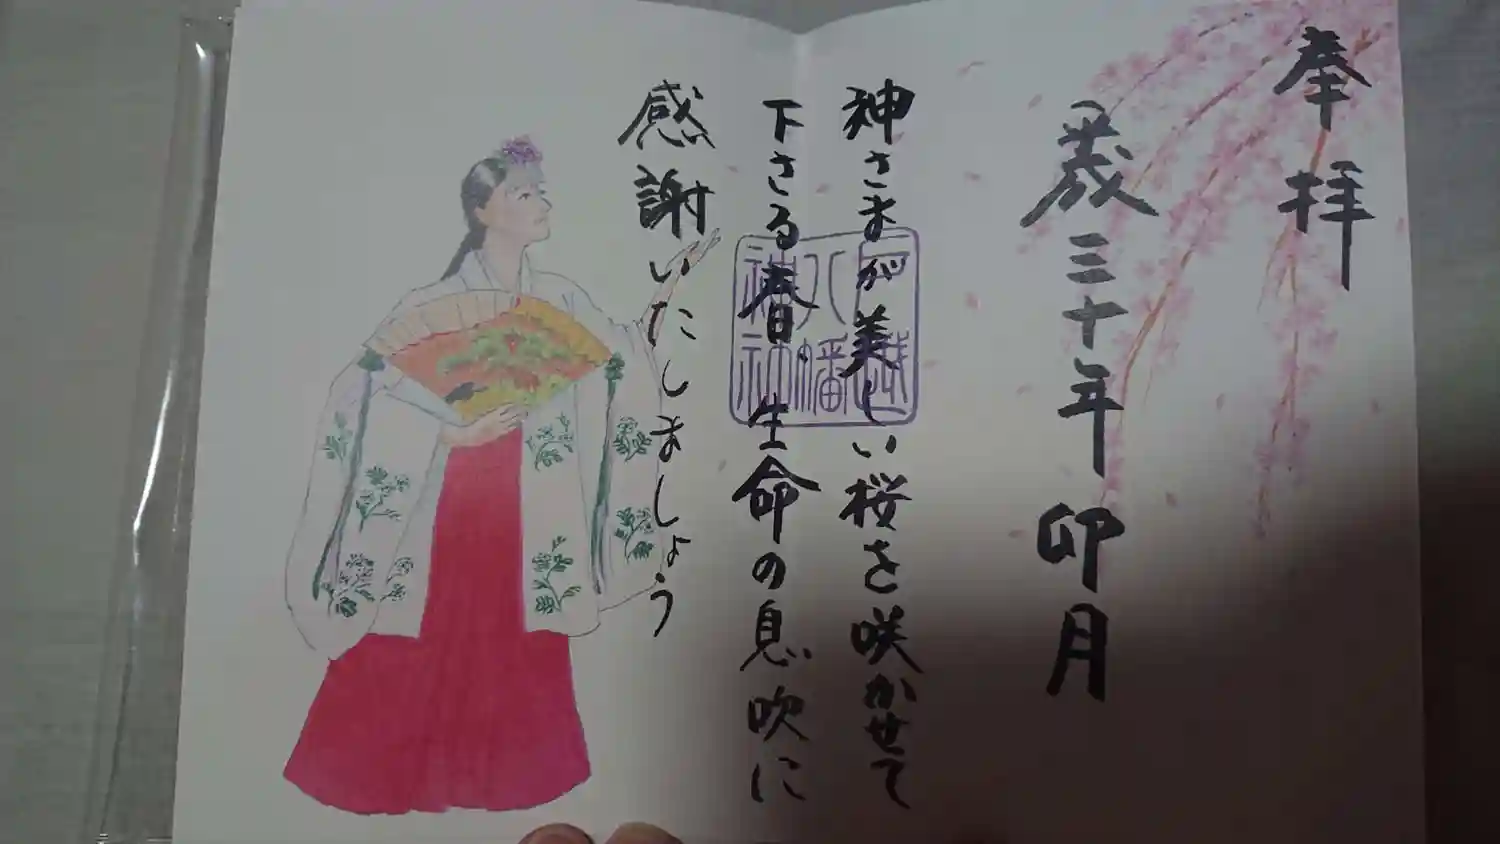 奉拝
歳三十年卯月
神さまが美しい桜を咲かせて
下さる春、生命の息吹に
感謝いたしましょう
八幡
神社